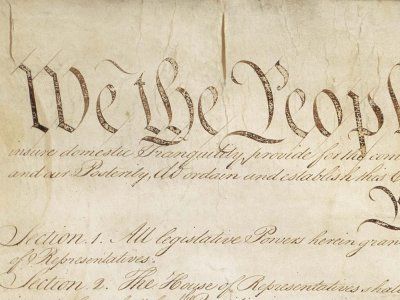 We the Peop
insure domestic Tranquility, provide for the com
and our Posterity, do ordain and establish this C
Section. 1. All legislative Powers herein gran
of Representatives.
Section. 2. The House of Representatives shal